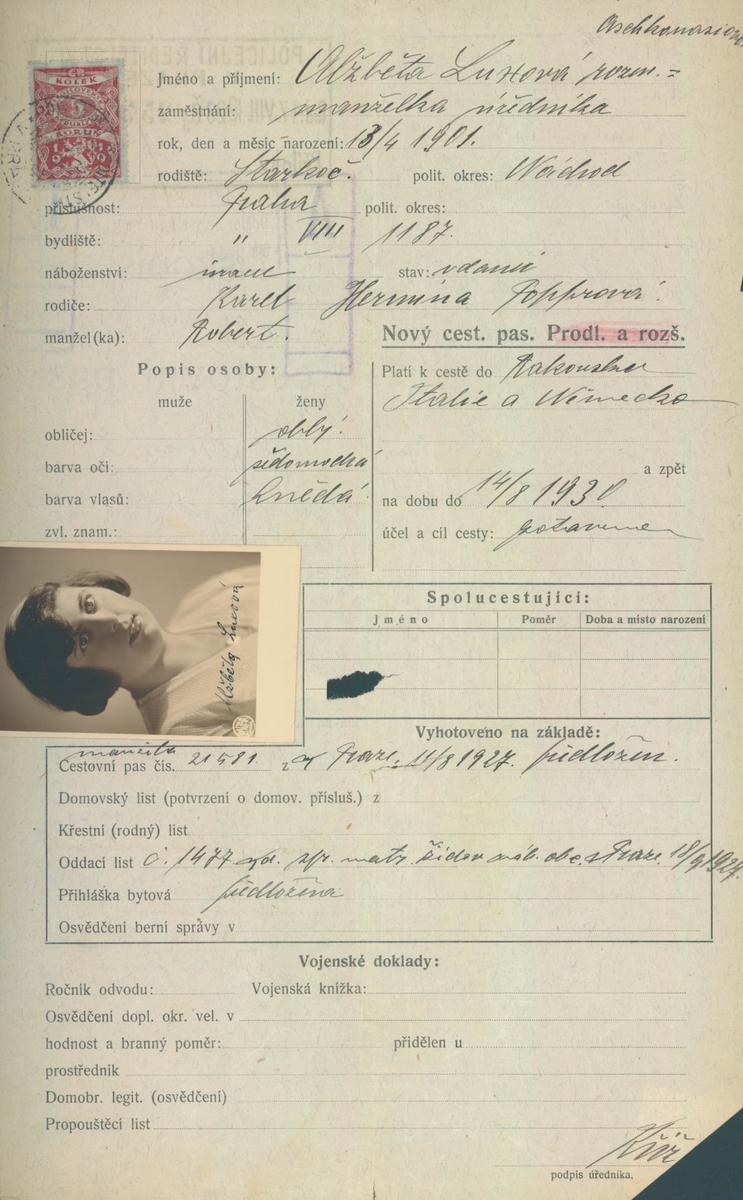 Jméno a příjmení: Alžběta Luxová rozn.=
zaměstnání: manželka úředníka
rok, den a měsíc narození: 13/4 1901.
rodiště: Starkoč. polit. okres: Náchod
příslušnost: Praha polit. okres:
bydliště: " VIII 1187.
náboženství: stav: vdaná
rodiče: Karel Hermína Popprová.
manžel(ka): Robert.
Nový cest. pas. Prodl. a rozš.
Popis osoby:
Platí k cestě do Rakouska
Italie a Německo
muže ženy
obličej: oblý
barva očí: šedomodrá
a zpět
barva vlasů: hnědá
na dobu do 14/8 1930.
zvl. znam.:
účel a cíl cesty:
Alžběta Luxová
KOLEK
KORUN
1919
Spolucestující:
Jméno Poměr Doba a místo narození
Vyhotoveno na základě:
manžela
Cestovní pas čís. 21581 z Praze 11/8 1927. předložen.
Domovský list (potvrzení o domov. přísluš.) z
Křestní (rodný) list
Oddací list č. 1477 matr. židov. náb. obce Praze 18/9 1927.
Přihláška bytová předložena
Osvědčení berní správy v
Vojenské doklady:
Ročník odvodu: Vojenská knížka:
Osvědčení dopl. okr. vel. v
hodnost a branný poměr: přidělen u
prostředník
Domobr. legit. (osvědčení)
Propouštěcí list
podpis úředníka.